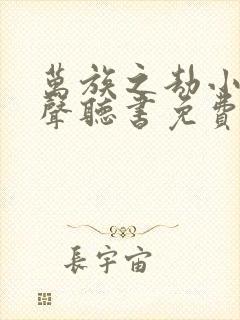 萬族之劫小
聲聽書免費
長宇宙